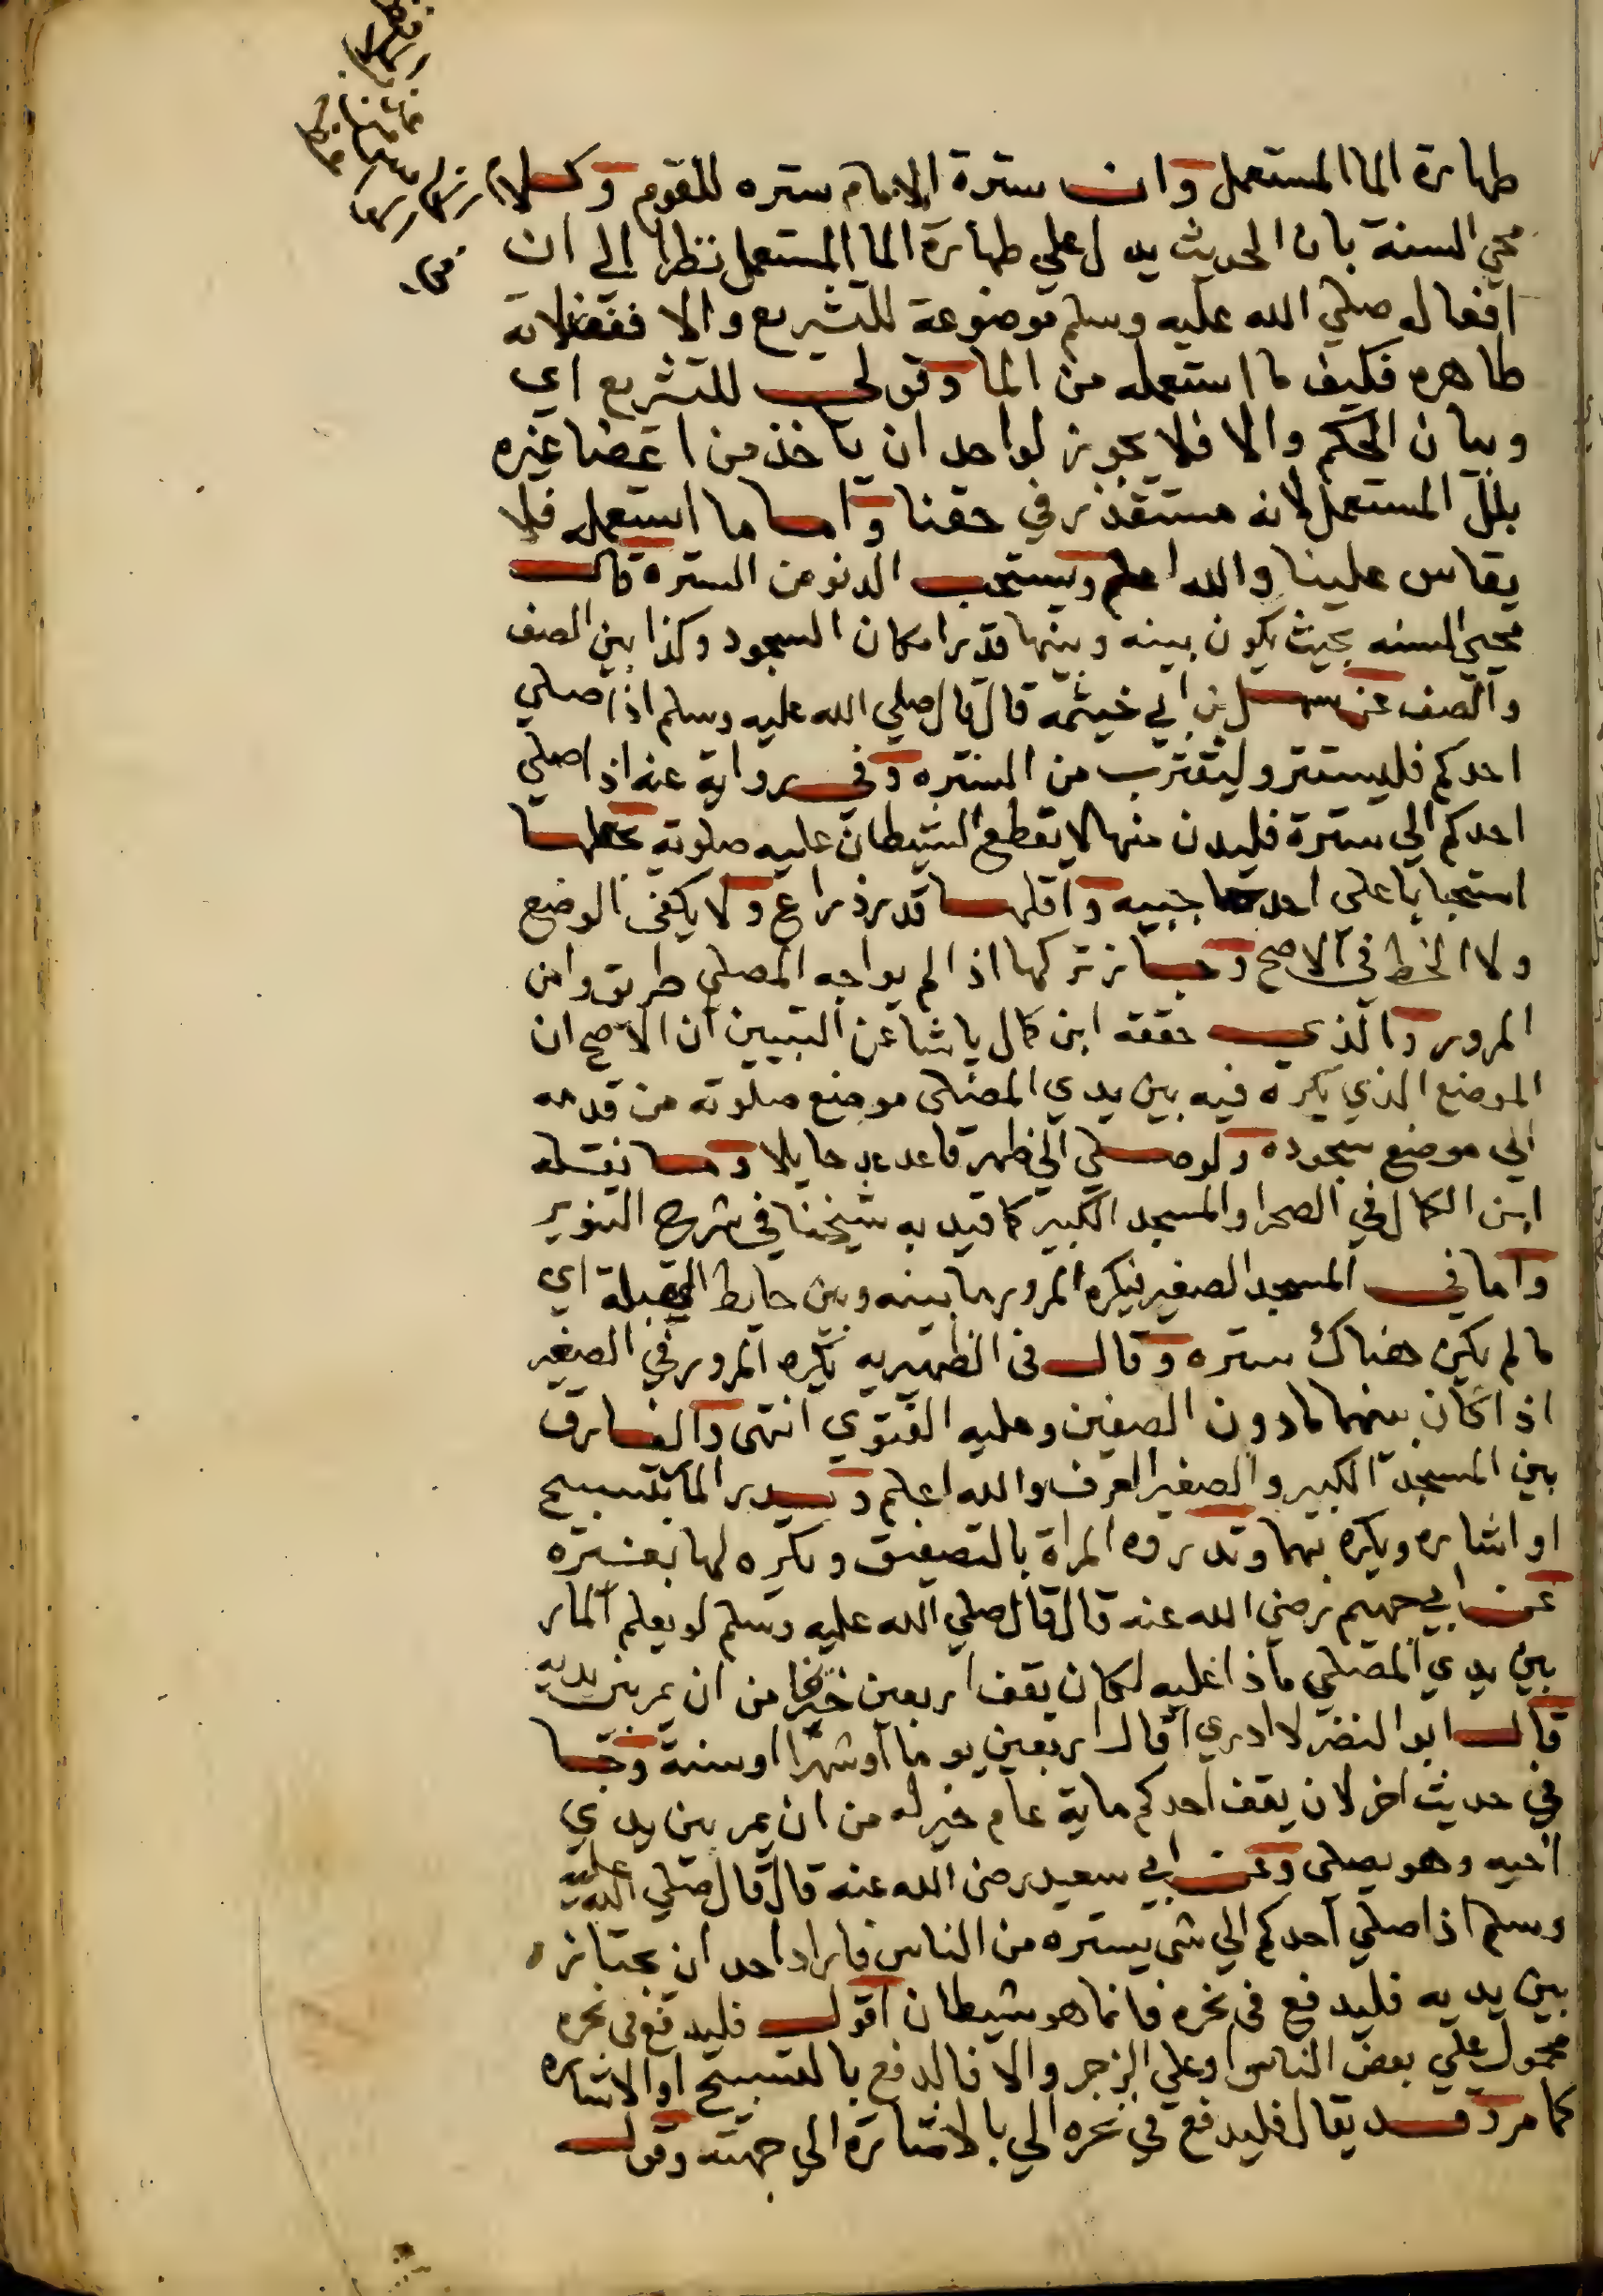 طهارة الما المستعمل وان سترة الامام ستره للقوم وكلام
محي السنة بان الحديث يدل علي طهارة الما المستعمل نظرا الي ان
افعاله صلي الله عليه وسلم موضوعة للتشريع والا ففضلاته
طاهره فكيف ما استعمله من الما وقولي للتشريع اي
وبيان الحكم والا فلا يجوز لواحد ان ياخذ من اعضا غيره
بلل المستعمل لانه مستقذر في حقنا واما ما استعمله فلا
يقاس علينا والله اعلم ويستحب الدنو من السترة قال
محيي السنه بحيث يكون بينه وبينها قدر امكان السجود وكذا بين الصف
والصف عن سهل بن ابي خيثمة قال قال صلي الله عليه وسلم اذا صلي
احدكم فليستتر وليقترب من الستره وفي رواية عنه اذا صلي
احدكم الي سترة فليدن منها لا يقطع الشيطان عليه صلوته يجعلها
استحبابا علي احد حاجبيه واقلها قدر ذراع ولا يكفي الوضع
ولا الخط في الاصح وجاز تركها اذا لم يواجه المصلي طريق وامن
المرور والذي حققه ابن كمال باشا عن التبيين ان الاصح ان
الموضع الذي يكره فيه بين يدي المصلي موضع صلوته من قدمه
الي موضع سجوده ولو صلي الي ظهر قاعد عد حايلا وما نقله
ابن الكمال في الصحرا والمسجد الكبير كما قيد به شيخنا في شرح التنوير
واما في المسجد الصغير فيكره المرور ما بينه وبين حايط القبلة اي
ما لم يكن هناك ستره وقال في الظهيريه يكره المرور في الصغير
اذا كان بينهما ما دون الصفين وعليه الفتوي انتهي والفارق
بين المسجد الكبير والصغير العرف والله اعلم ويدر المار بتسبيح
او اشاره ويكره بهما وتدروه المراة بالتصفيق ويكره لها بغيره
عن ابي جهيم رضي الله عنه قال قال صلي الله عليه وسلم لو يعلم المار
بين يدي المصلي ماذا عليه لكان يقف اربعين خيرا من ان يمر بين يديه
قال ابو النضر لا ادري اقال اربعين يوما او شهرا او سنة وجا
في حديث اخر لان يقف احدكم ماية عام خير له من ان يمر بين يدي
اخيه وهو يصلي وعن ابي سعيد رضي الله عنه قال قال صلي الله عليه
وسلم اذا صلي احدكم الي شي يستره من الناس فاراد احد ان يجتازه
بين يديه فليدفع في نحره فانما هو شيطان اقول فليدفع في نحره
محمول علي بعض الناس او علي الزجر والا فالدفع بالتسبيح او الاشاره
كما مر وقد يقال فليدفع في نحره الي بالاشارة الي جهته وقول